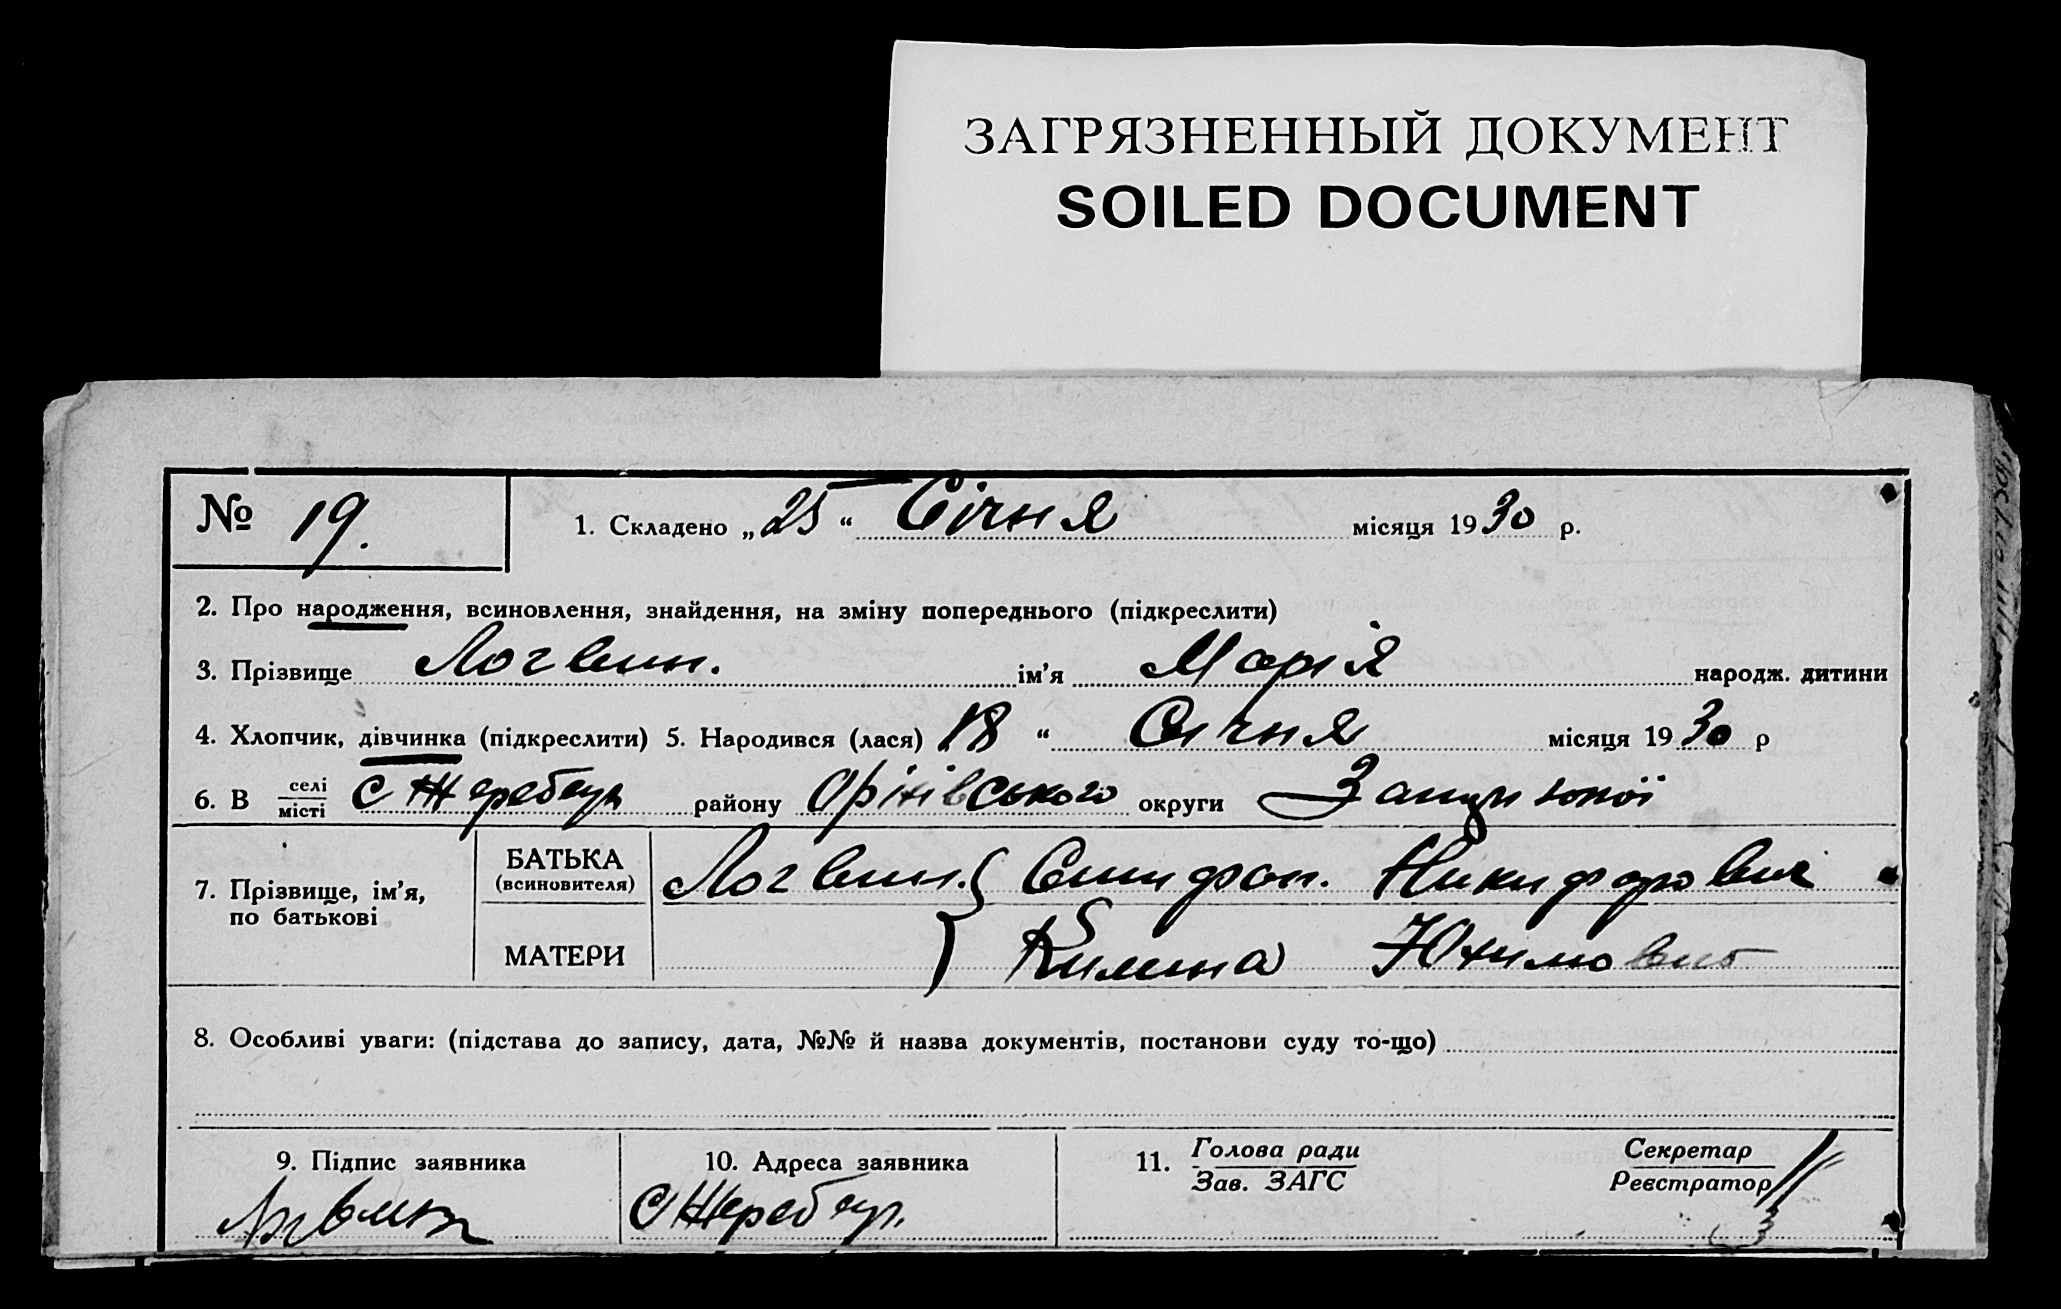 ЗАГРЯЗНЕННЫЙ ДОКУМЕНТ
SOILED DOCUMENT
№ 19. 1. Складено „25“ Січня місяця 1930 р.
2. Про народження, всиновлення, знайдення, на зміну попереднього (підкреслити)
3. Прізвище Логвин. ім’я Марія народж. дитини
4. Хлопчик, дівчинка (підкреслити) 5. Народився (лася) 18 “ Січня місяця 1930 р
6. В селі
місті с Жеребець району Оріхівського округи
7. Прізвище, ім’я,
по батькові
БАТЬКА
(всиновителя)
Логвин. Никифорович
МАТЕРИ
8. Особливі уваги: (підстава до запису, дата, №№ й назва документів, постанови суду то-що)
9. Підпис заявника
10. Адреса заявника
с Жеребец.
11. Голова ради
Зав. ЗАГС
Секретар
Реєстратор